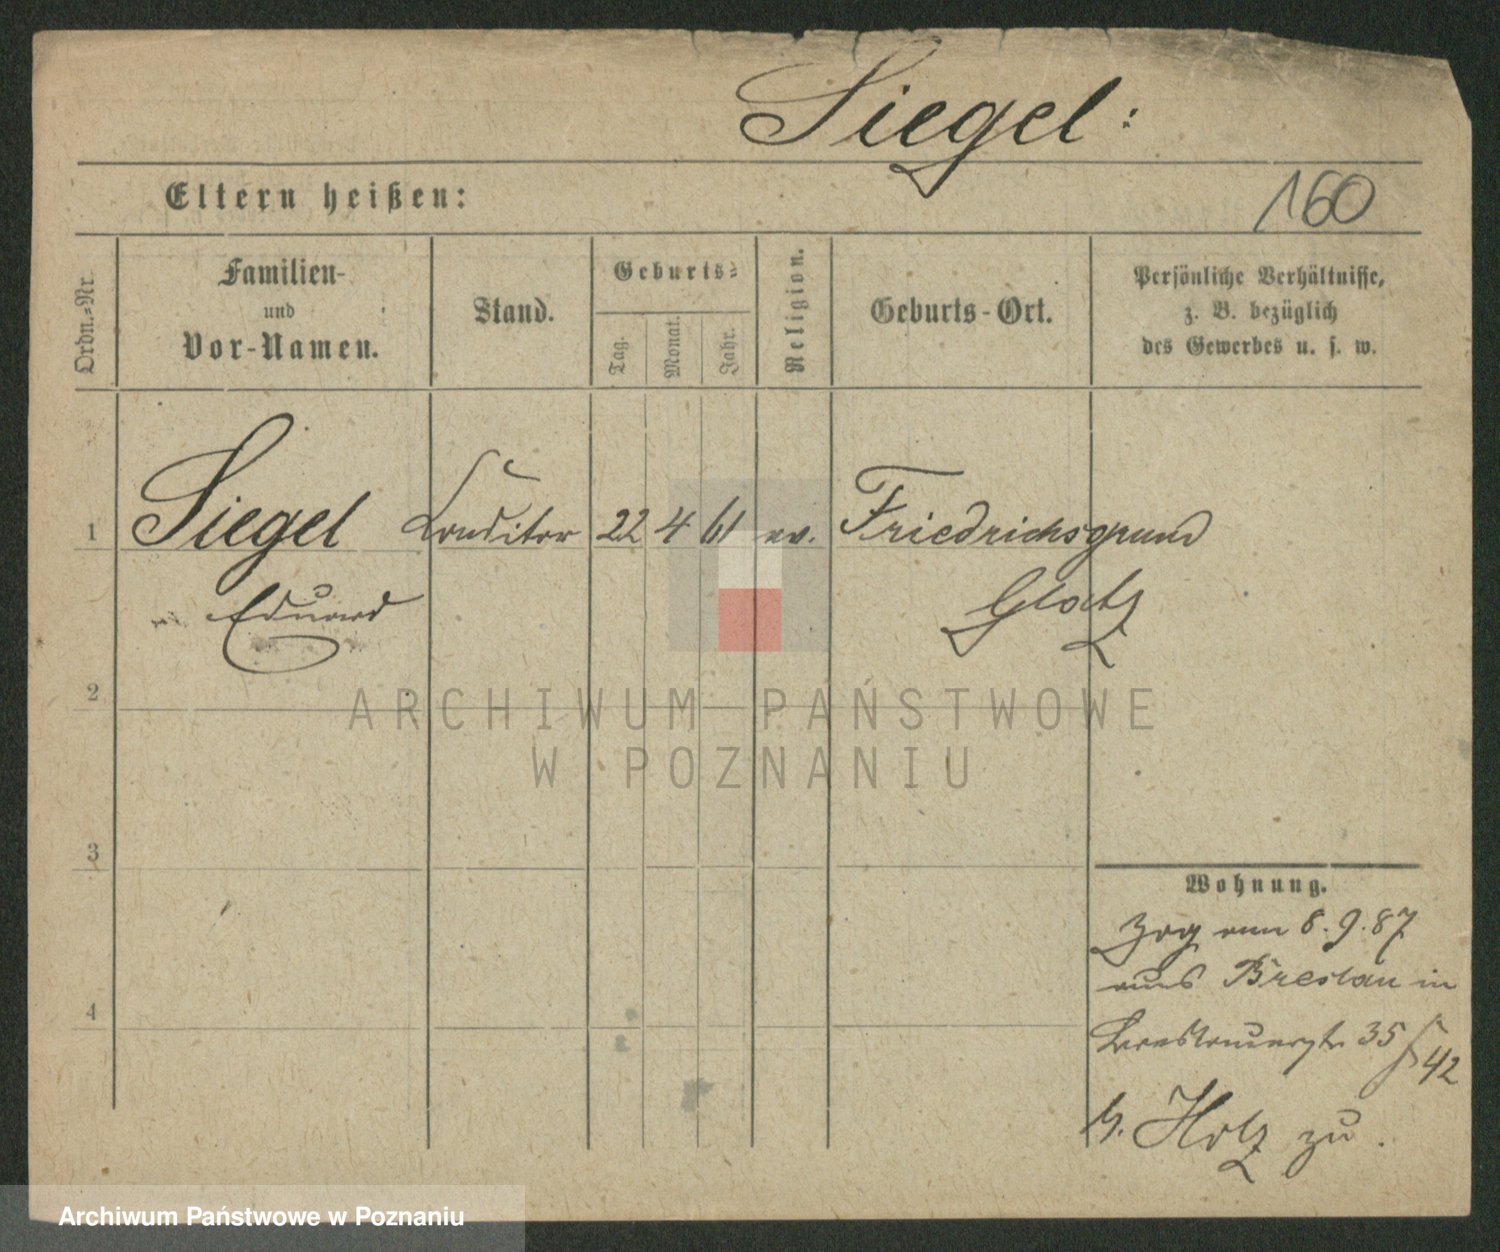 Siegel:
Eltern heißen:
160
Ordn.-Nr.
Familien-
und
Vor-Namen.
Stand.
Geburts-
Tag.
Monat.
Jahr.
Religion.
Geburts-Ort.
Persönliche Verhältnisse,
z. B. bezüglich
des Gewerbes u. s. w.
1
Siegel
Conditor
22
4
61
ev.
Friedrichsgrund
Eduard
Glatz
2
ARCHIWUM PAŃSTWOWE
W POZNANIU
3
Wohnung.
Zog am 8.9.87
aus Breslau in
35/42
4
b. Holz zu.
Archiwum Państwowe w Poznaniu